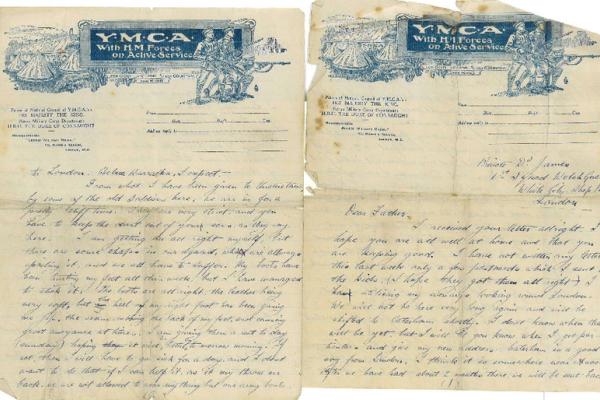 Y.M.C.A.
With H.M. Forces
on Active Service
Patron of National Council of Y.M.C.A's
HIS MAJESTY THE KING.
Patron Military Camp Department
H.R.H. THE DUKE OF CONNAUGHT
to London. Chelsea Barracks, I suspect.
From what I have been given to understand
by some of the old soldiers here, we are in for a
pretty stiff time. They are very strict and you
have to keep the dirt out of your eyes as they say
here. I am getting on all right myself, but
there are some chaps in our squad, who are always
and we all have to suffer. My boots have
been hurting my feet all this week, but I have managed
to stick it. The boots are all right, the leather being
very soft, but the heel of my right foot has been giving
me gip, the seams rubbing the back of my foot, and causing
great annoyance at times. I am giving them a rest to day
(Sunday) hoping it will be better tomorrow morning. If
not then I will have to go sick for a day, and I dont
want to do that if I can help it, as it may throw me
back, as we are not allowed to wear anything but our army boots.
Y.M.C.A.
With H.M. Forces
on Active Service
Patron of National Council of Y.M.C.A's
HIS MAJESTY THE KING.
Patron Military Camp Department
H.R.H. THE DUKE OF CONNAUGHT
Private D. James
Squad Welsh Guards
White City
London
Dear Father,
I received your letter alright. I
hope you are all well at home and that you
are keeping good. I have not written any letters
this last week only a few postcards which I sent to
the kids (I hope they got them all right) I
have been taking my evenings looking round London.
We will not be here very long again and will be
shifted to Caterham shortly. I don't know when that
will be yet but I will let you know when I get per-
and give my new address. Caterham is a good
way from London. I think it is somewhere near
After we have had about 2 months there, we will be sent back
(1)